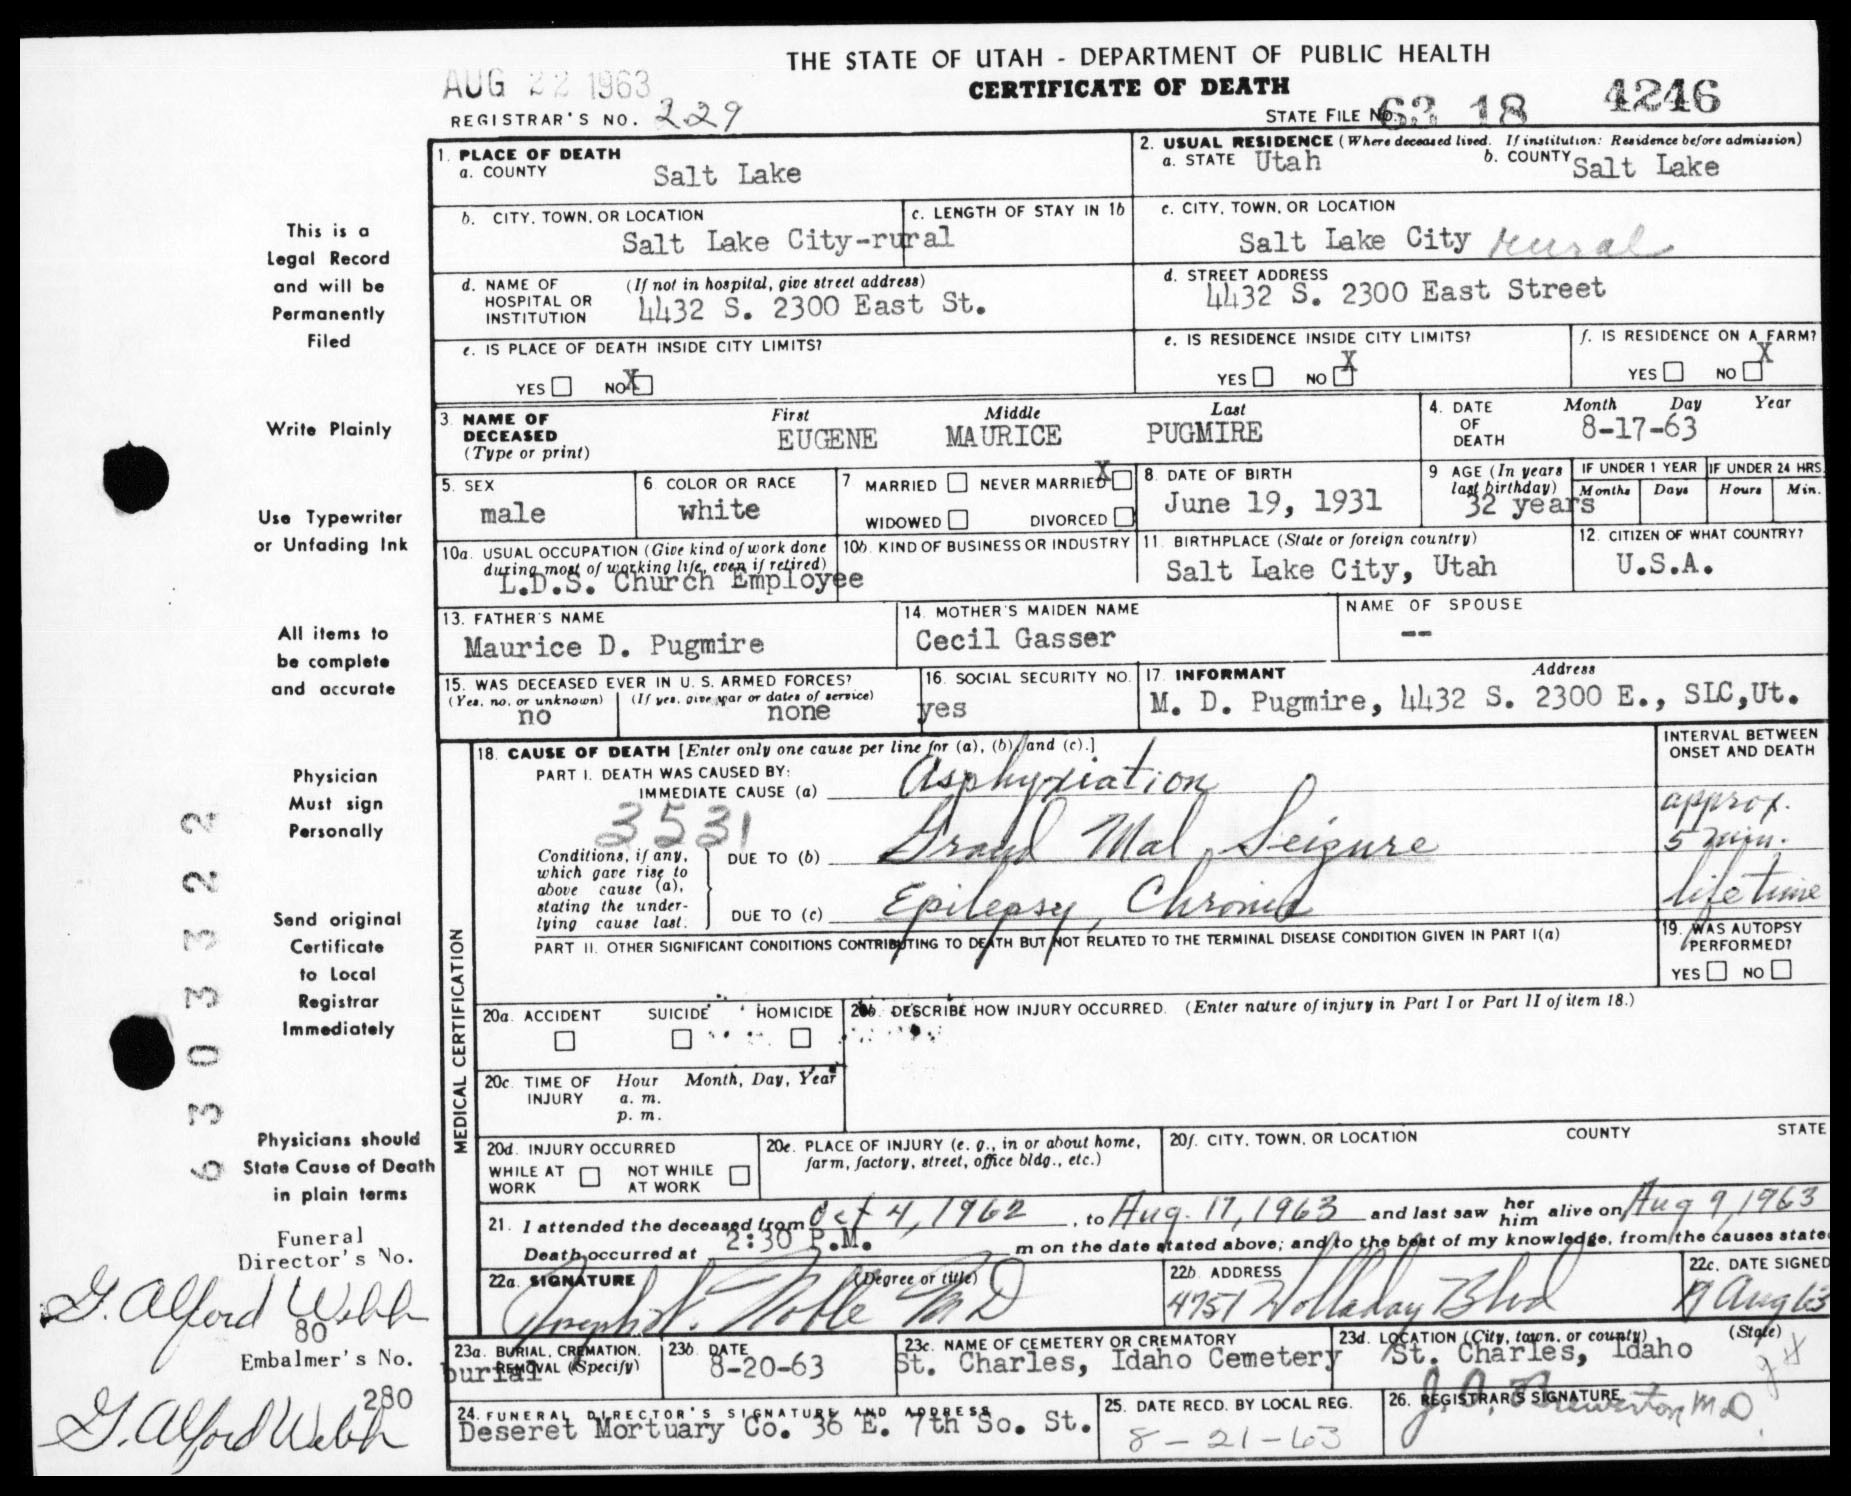 THE STATE OF UTAH - DEPARTMENT OF PUBLIC HEALTH
AUG 22 1963
CERTIFICATE OF DEATH
REGISTRAR'S NO. 229
STATE FILE NO. 63 18 4246
1. PLACE OF DEATH
a. COUNTY Salt Lake
2. USUAL RESIDENCE (Where deceased lived. If institution: Residence before admission)
a. STATE Utah b. COUNTY Salt Lake
b. CITY, TOWN, OR LOCATION
Salt Lake City-rural
c. LENGTH OF STAY IN 1b
c. CITY, TOWN, OR LOCATION
Salt Lake City rural
d. NAME OF HOSPITAL OR INSTITUTION (If not in hospital, give street address)
4432 S. 2300 East St.
d. STREET ADDRESS
4432 S. 2300 East Street
e. IS PLACE OF DEATH INSIDE CITY LIMITS?
YES NO X
e. IS RESIDENCE INSIDE CITY LIMITS?
YES NO X
f. IS RESIDENCE ON A FARM?
YES NO X
3. NAME OF DECEASED (Type or print)
First Middle Last
EUGENE MAURICE PUGMIRE
4. DATE OF DEATH
Month Day Year
8-17-63
5. SEX
male
6 COLOR OR RACE
white
7 MARRIED NEVER MARRIED X
WIDOWED DIVORCED
8. DATE OF BIRTH
June 19, 1931
9 AGE (In years last birthday)
32 years
IF UNDER 1 YEAR
Months Days
IF UNDER 24 HRS.
Hours Min.
10a. USUAL OCCUPATION (Give kind of work done during most of working life, even if retired)
L.D.S. Church Employee
10b. KIND OF BUSINESS OR INDUSTRY
11. BIRTHPLACE (State or foreign country)
Salt Lake City, Utah
12. CITIZEN OF WHAT COUNTRY?
U.S.A.
13. FATHER'S NAME
Maurice D. Pugmire
14. MOTHER'S MAIDEN NAME
Cecil Gasser
NAME OF SPOUSE
--
15. WAS DECEASED EVER IN U. S. ARMED FORCES?
(Yes, no, or unknown) (If yes, give war or dates of service)
no none
16. SOCIAL SECURITY NO.
yes
17. INFORMANT Address
M. D. Pugmire, 4432 S. 2300 E., SLC,Ut.
MEDICAL CERTIFICATION
18. CAUSE OF DEATH [Enter only one cause per line for (a), (b), and (c).]
INTERVAL BETWEEN ONSET AND DEATH
PART I. DEATH WAS CAUSED BY:
IMMEDIATE CAUSE (a) Asphyxiation
approx. 5 min.
3531
Conditions, if any, which gave rise to above cause (a), stating the underlying cause last.
DUE TO (b) Grand Mal Seizure
DUE TO (c) Epilepsy, Chronic
lifetime
PART II. OTHER SIGNIFICANT CONDITIONS CONTRIBUTING TO DEATH BUT NOT RELATED TO THE TERMINAL DISEASE CONDITION GIVEN IN PART I(a)
19. WAS AUTOPSY PERFORMED?
YES NO
20a. ACCIDENT SUICIDE HOMICIDE
20b. DESCRIBE HOW INJURY OCCURRED. (Enter nature of injury in Part I or Part II of item 18.)
20c. TIME OF INJURY Hour Month, Day, Year
a. m.
p. m.
20d. INJURY OCCURRED
WHILE AT WORK NOT WHILE AT WORK
20e. PLACE OF INJURY (e. g., in or about home, farm, factory, street, office bldg., etc.)
20f. CITY, TOWN, OR LOCATION COUNTY STATE
21. I attended the deceased from Oct 4, 1962, to Aug. 17, 1963 and last saw her him alive on Aug 9, 1963
Death occurred at 2:30 P.M. m on the date stated above; and to the best of my knowledge, from the causes state
22a. SIGNATURE (Degree or title)
Joseph N. Noble MD
22b. ADDRESS
4751 Holladay Blvd
22c. DATE SIGNED
19 Aug 63
23a. BURIAL, CREMATION, REMOVAL (Specify)
burial
23b. DATE
8-20-63
23c. NAME OF CEMETERY OR CREMATORY
St. Charles, Idaho Cemetery
23d. LOCATION (City, town, or county) (State)
St. Charles, Idaho
24. FUNERAL DIRECTOR'S SIGNATURE AND ADDRESS
Deseret Mortuary Co. 36 E. 7th So. St.
25. DATE RECD. BY LOCAL REG.
8-21-63
26. REGISTRAR'S SIGNATURE
This is a
Legal Record
and will be
Permanently
Filed
Write Plainly
Use Typewriter
or Unfading Ink
All items to
be complete
and accurate
Physician
Must sign
Personally
Send original
Certificate
to Local
Registrar
Immediately
Physicians should
State Cause of Death
in plain terms
6303322
Funeral
Director's No.
G. Alford Webb
80
Embalmer's No.
280
G. Alford Webb